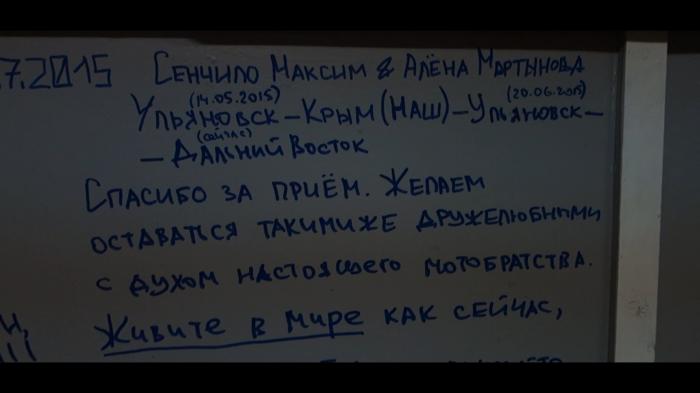 .7.2015 Сенчило Максим & Алёна Мартынова
(14.05.2015) (20.06.2015)
Ульяновск – Крым (Наш) – Ульяновск –
(сейчас)
– Дальний Восток
Спасибо за приём. Желаем
оставаться такимиже дружелюбными
с духом настоящего мотобратства.
Живите в мире как сейчас,